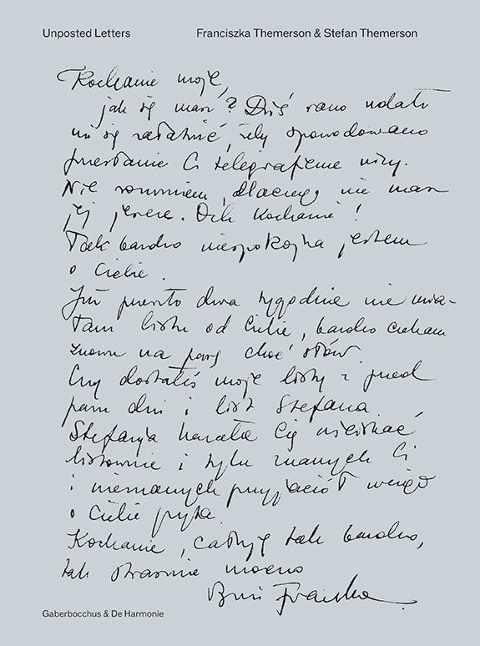 Unposted Letters Franciszka Themerson & Stefan Themerson
Kochanie moje,
jak się masz? Dziś rano udało
mi się załatwić, żeby spowodowano
przesłanie Ci telegrafem wizy.
Nie rozumiem, dlaczego nie masz
jej jeszcze. Och Kochanie!
Tak bardzo niespokojna jestem
o Ciebie.
Już prawie dwa tygodnie nie mia-
łam listu od Ciebie, bardzo czekam
znowu na parę choć słów.
Czy dostałeś moje listy z przed
paru dni i list Stefana.
Stefanja kazała Cię uściskać
listownie i tylu znanych Ci
i nieznanych przyjaciół wciąż
o Ciebie pyta.
Kochanie, całuję tak bardzo,
tak strasznie mocno
Franka
Gaberbocchus & De Harmonie